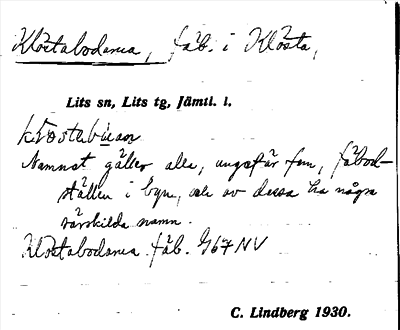 Klöstabodarna, fäb. i Klösta,
Lits sn, Lits tg, Jämtl. l.
Namnet gäller alla, ungefär fem, fäbod-
ställen i byn, och av dessa ha några
särskilda namn.
Klöstabodarna fäb. 967 NV
C. Lindberg 1930.